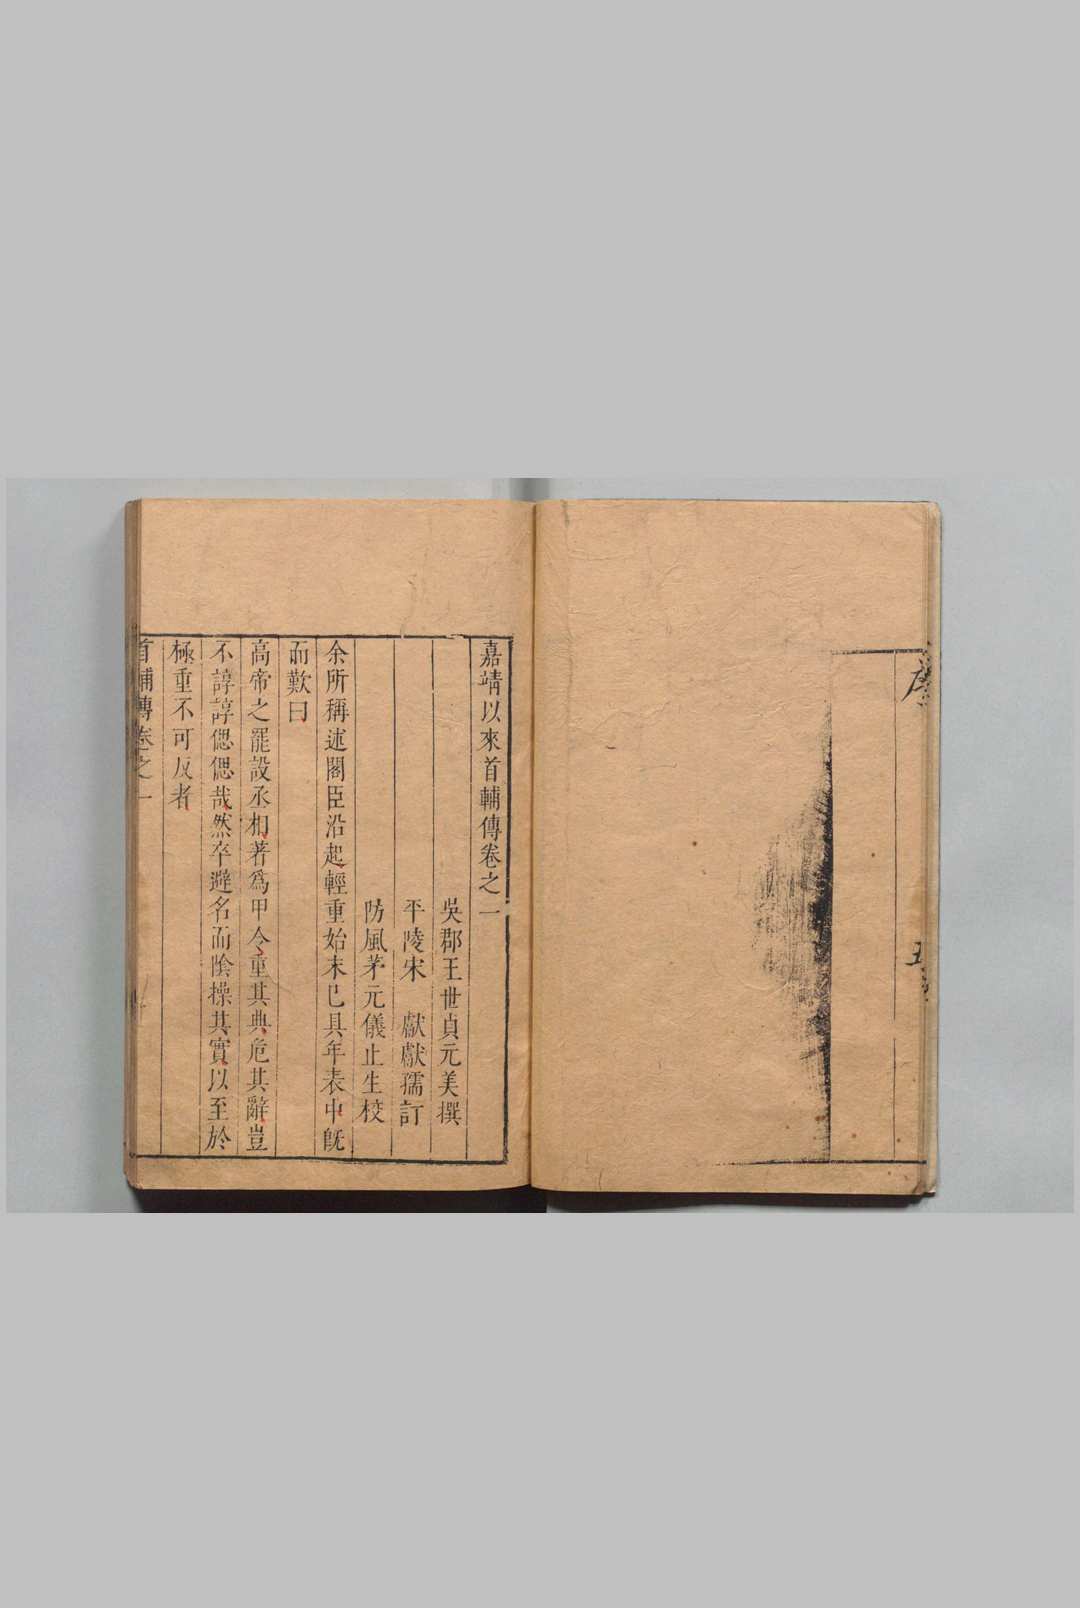 嘉靖以來首輔傳卷之一
吳郡王世貞元美撰
平陵宋　獻獻孺訂
防風茅元儀止生校
余所稱述閣臣沿起輕重始末已具年表中旣
而歎曰
高帝之罷設丞相著爲甲令重其典危其辭豈
不諄諄偲偲哉然卒避名而陰操其實以至於
極重不可反者
首輔傳卷之一